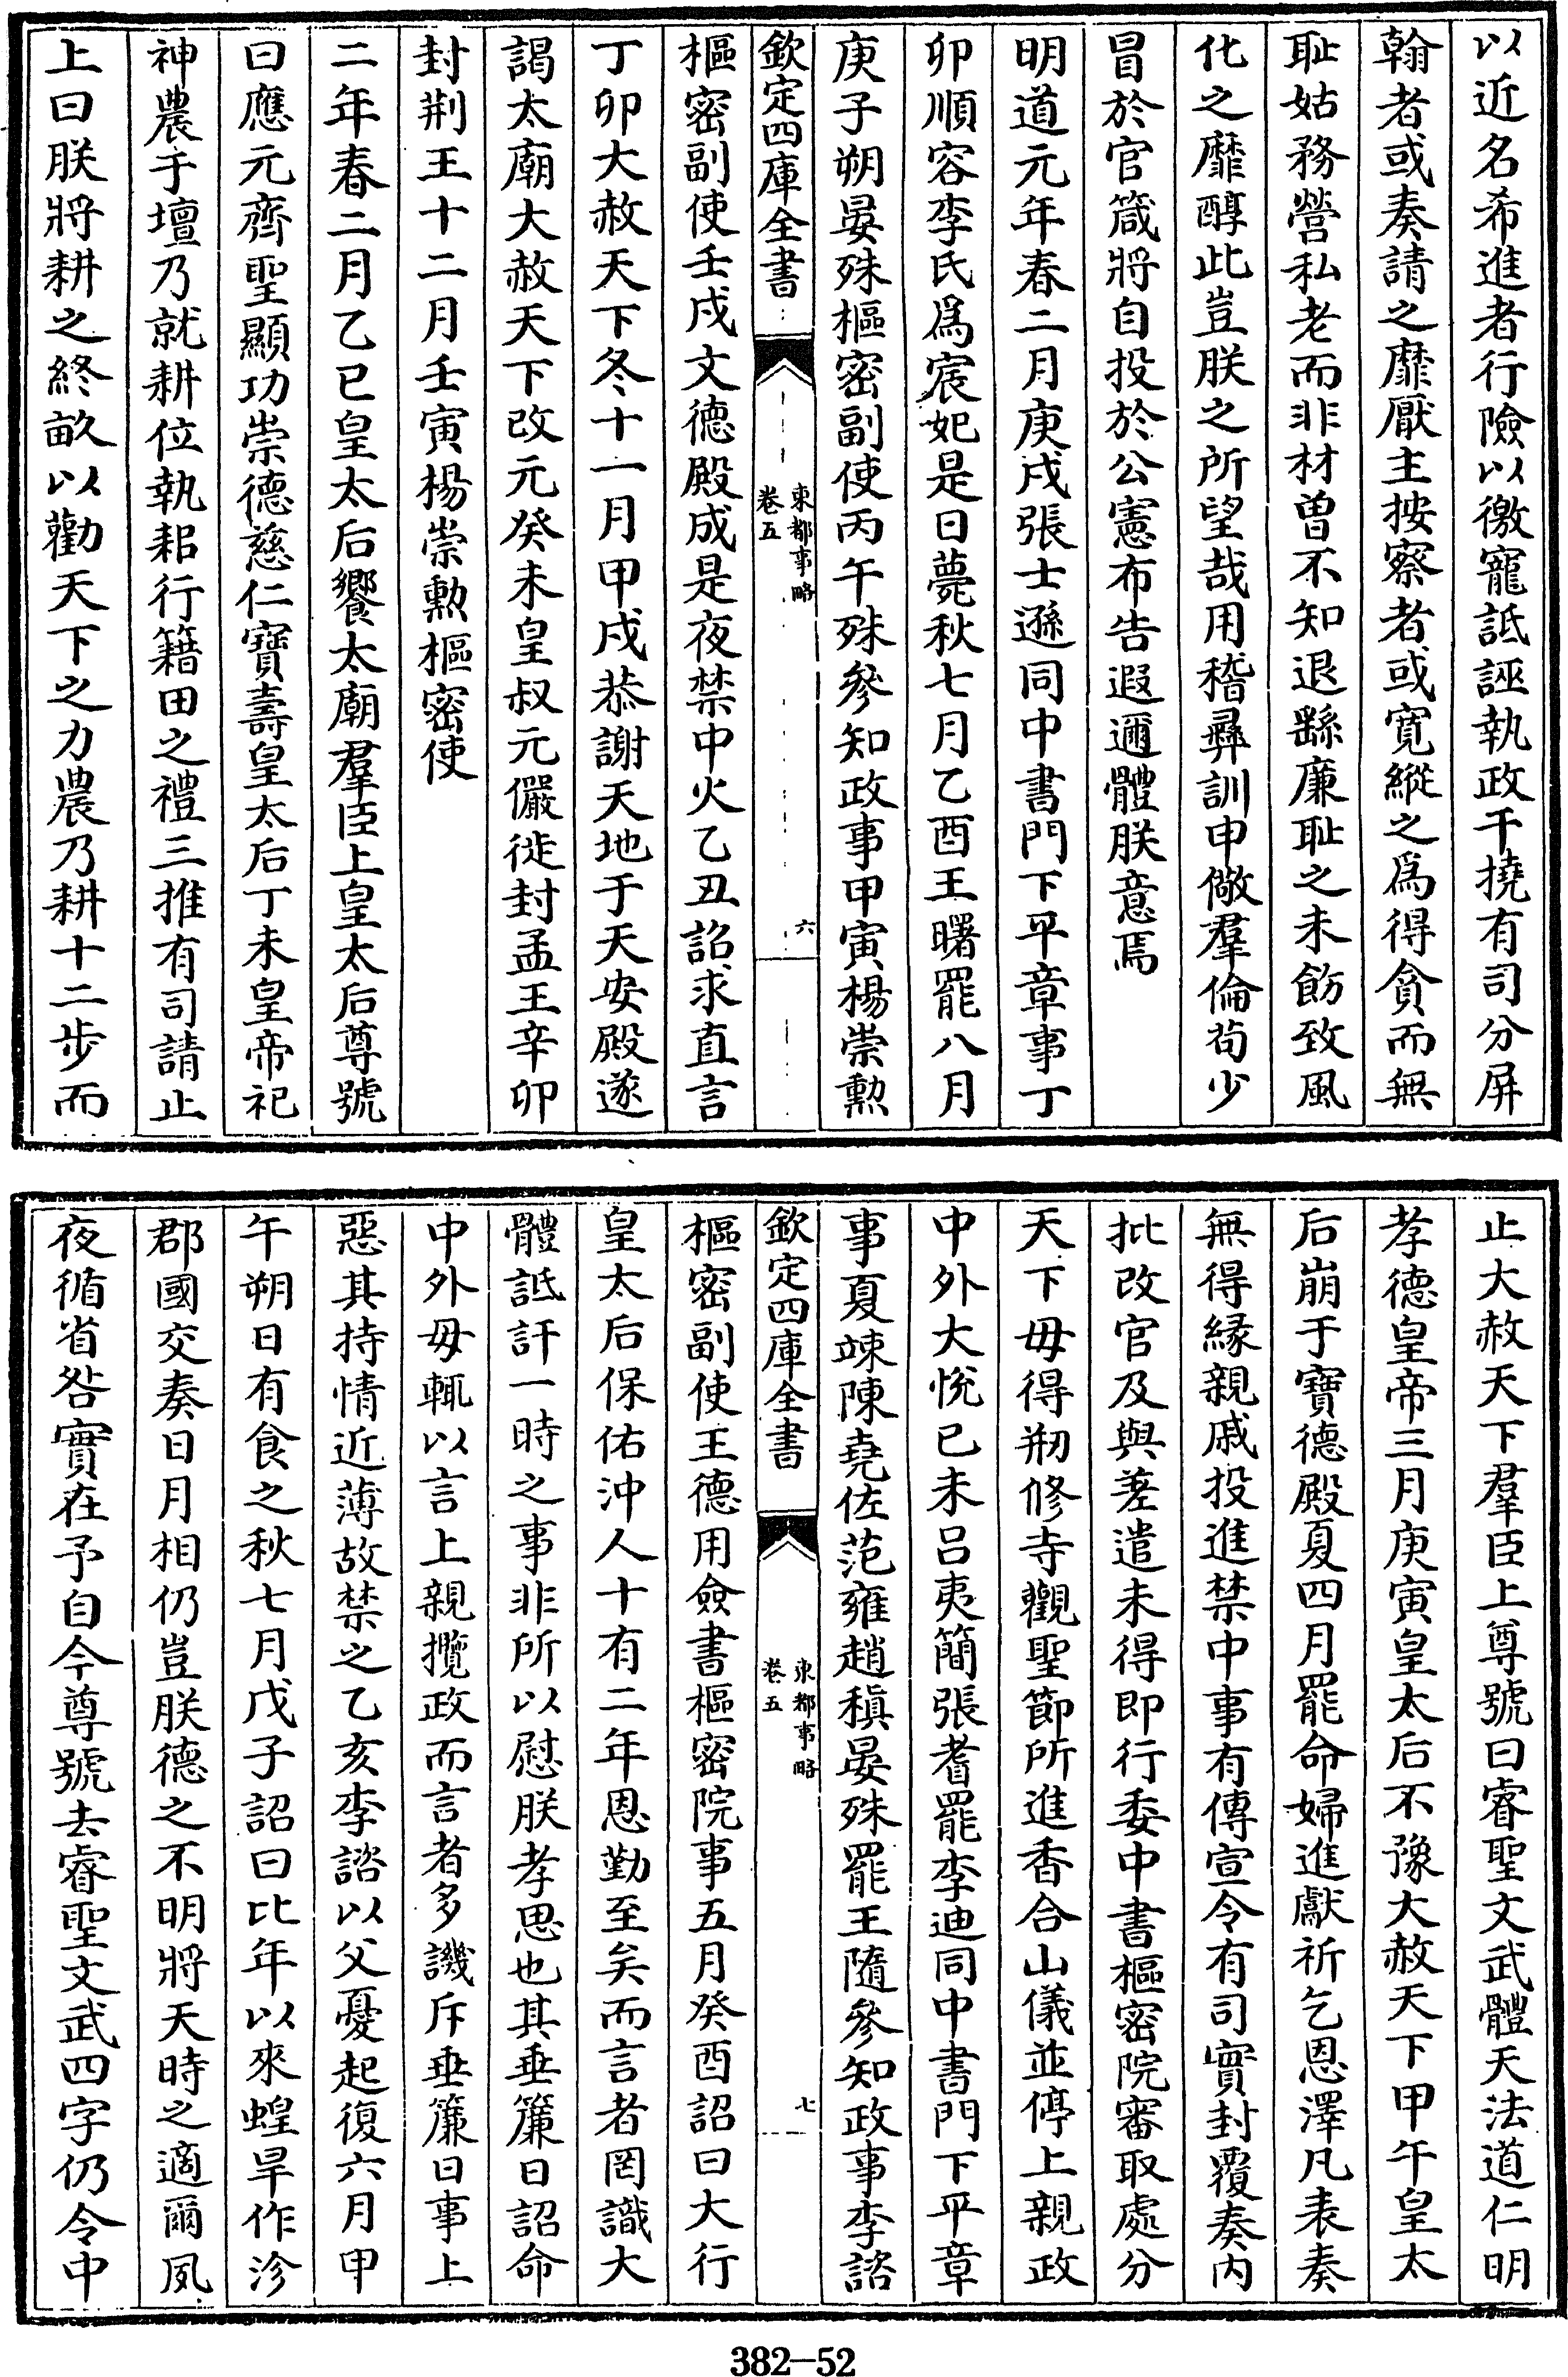 以近名希進者行險以徼寵詆誣執政干撓有司分屏
翰者或奏請之靡厭主按察者或寛縱之為得貪而無
耻姑務營私老而非材曽不知退繇廉耻之未飭致風
化之靡醇此豈朕之所望哉用稽彝訓申儆羣倫茍少
冒於官箴將自投於公憲布告遐邇體朕意焉
明道元年春二月庚戌張士遜同中書門下平章事丁
卯順容李氏爲宸妃是日薨秋七月乙酉王曙罷八月
庚子朔晏殊樞密副使丙午殊參知政事甲寅楊崇勲
欽定四庫全書
東都事略
卷五
六
樞密副使壬戌文德殿成是夜禁中火乙丑詔求直言
丁卯大赦天下冬十一月甲戌恭謝天地于天安殿遂
謁太廟大赦天下改元癸未皇叔元儼徙封孟王辛卯
封荆王十二月壬寅楊崇勲樞密使
二年春二月乙巳皇太后饗太廟羣臣上皇太后尊號
曰應元齊聖顯功崇德慈仁寶壽皇太后丁未皇帝祀
神農于壇乃就耕位執耜行籍田之禮三推有司請止
上曰朕將耕之終畝以勸天下之力農乃耕十二步而
止大赦天下羣臣上尊號曰睿聖文武體天法道仁明
孝德皇帝三月庚寅皇太后不豫大赦天下甲午皇太
后崩于寶德殿夏四月罷命婦進獻祈乞恩澤凡表奏
無得緣親戚投進禁中事有傳宣令有司實封覆奏内
批改官及與差遣未得即行委中書樞密院審取處分
天下毋得剏修寺觀聖節所進香合山儀並停上親政
中外大悅已未呂夷簡張耆罷李迪同中書門下平章
事夏竦陳堯佐范雍趙稹晏殊罷王隨參知政事李諮
欽定四庫全書
東都事略
卷五
七
樞密副使王德用僉書樞密院事五月癸酉詔曰大行
皇太后保佑沖人十有二年恩勤至矣而言者罔識大
體詆訐一時之事非所以慰朕孝思也其垂簾日詔命
中外毋輒以言上親攬政而言者多譏斥垂簾日事上
惡其持情近薄故禁之乙亥李諮以父憂起復六月甲
午朔日有食之秋七月戊子詔曰比年以來蝗旱作沴
郡國交奏日月相仍豈朕德之不明將天時之適爾夙
夜循省咎實在予自今尊號去睿聖文武四字仍令中
382—52